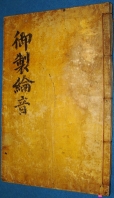 御製綸音